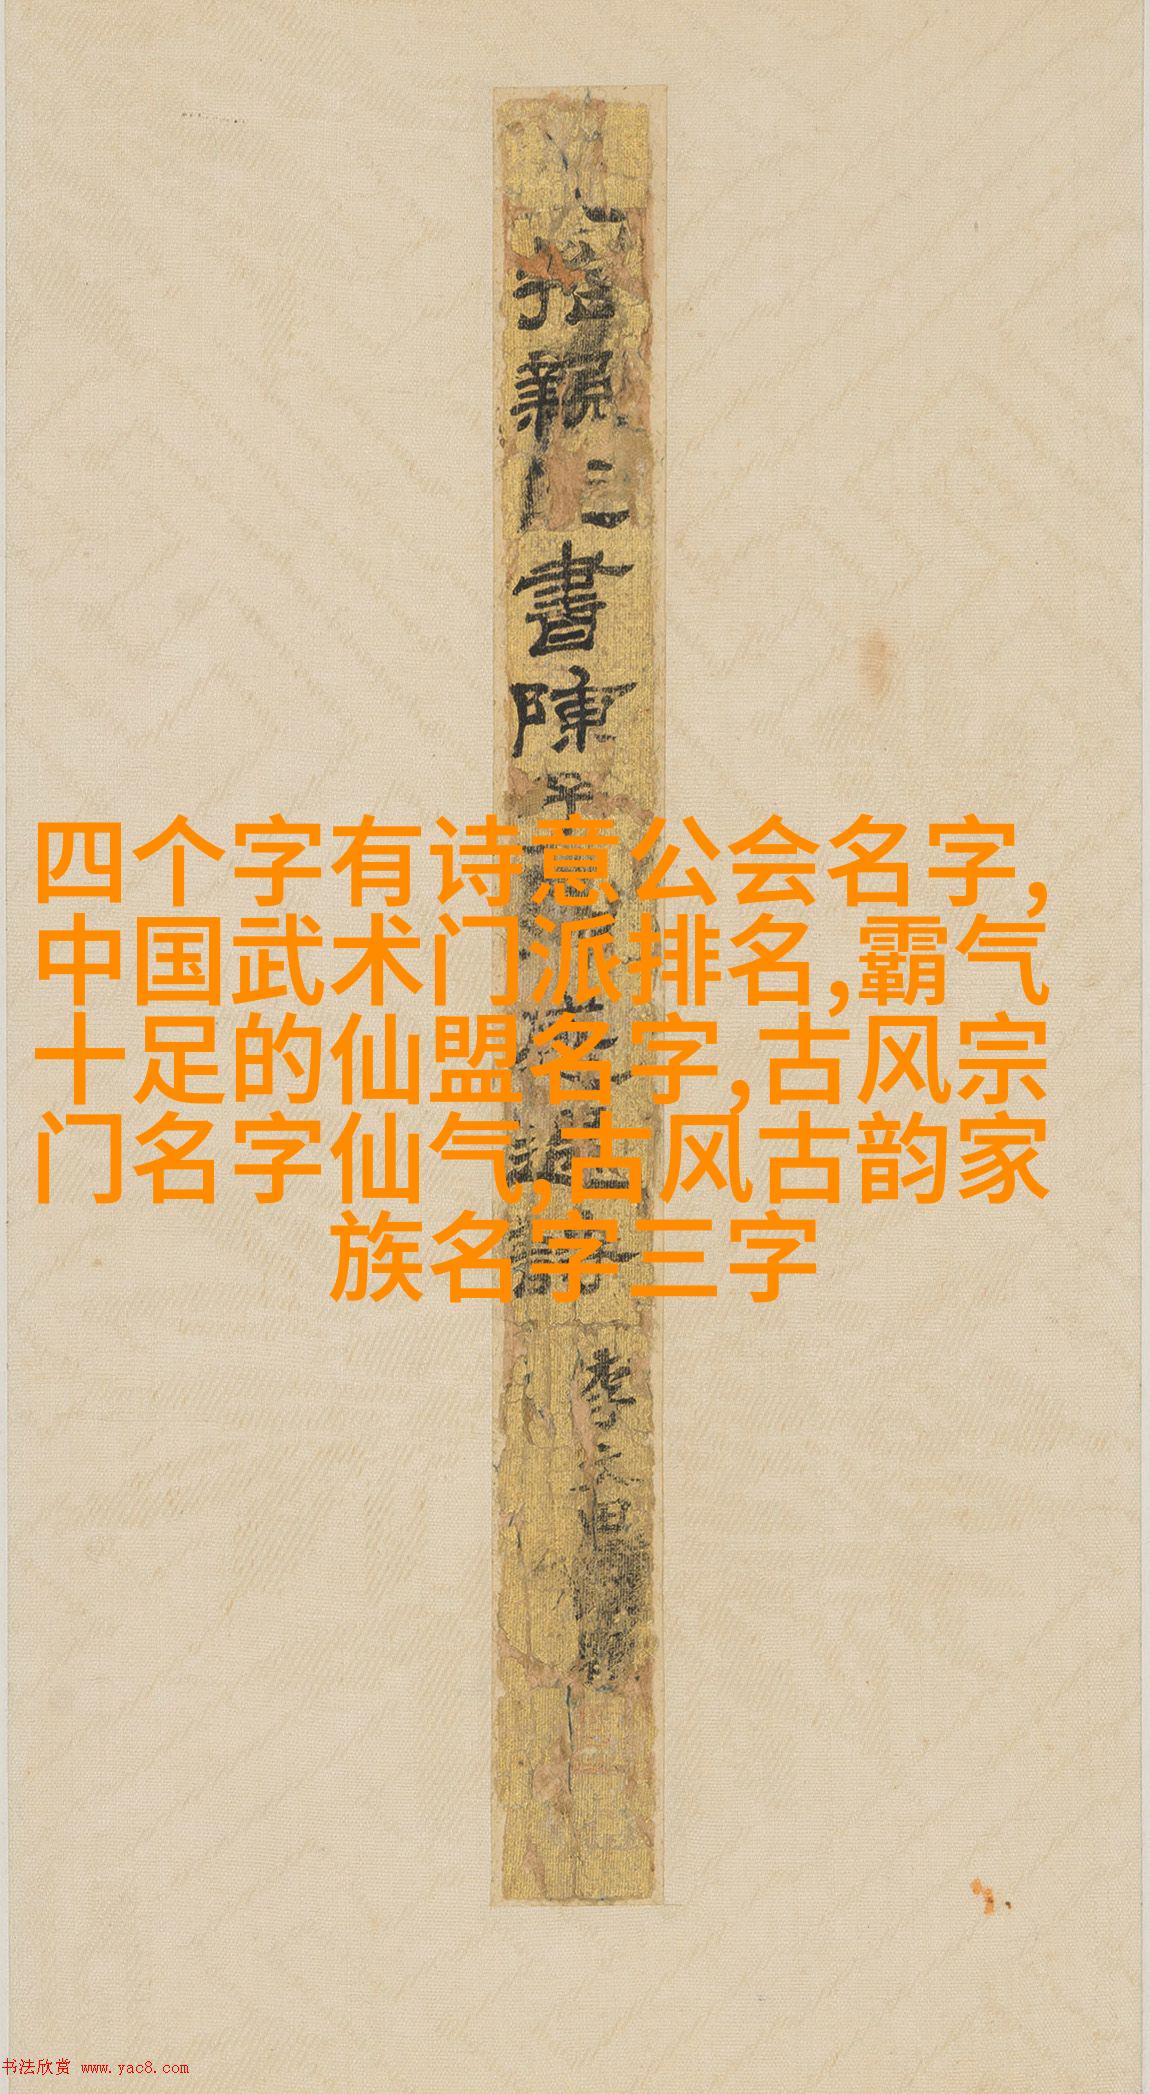 四个字有诗意公会名字,
中国武术门派排名,霸气
十足的仙盟名字,古风宗
门名字仙气,古风古韵家
族名字三字
書陳
李文田
书法欣赏 www.yac8.com